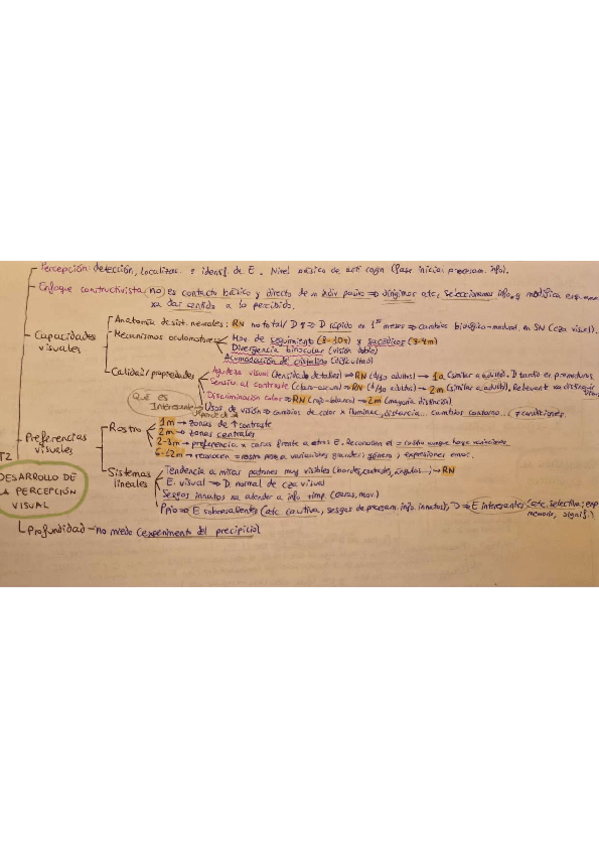 Percepción: detección, localizac. e identif. de E. Nivel básico de act. cogn (fase inicial procesam. info).
Enfoque constructivista (no) es contacto básico y directo de un indiv. pasivo => dirigimos atc, seleccionamos info. y modifica esquemas
xa dar sentido a lo percibido.
Capacidades visuales
Anatomía de sist. neurales: RN no total D => D rápido en 1os meses => cambios biológico-madurat. en SN (cza visual).
Mecanismos oculomotores
Mov. de seguimiento (3-10s) y sacádicos (3-4m)
Divergencia binocular (visión doble)
Acomodación de cristalino
Calidad/propiedades
Agudeza visual (densidad detalles) => RN → 1a (similar a adulto).
Sensib. al contraste (claro-oscuro) => RN → 2m (similar a adulto). Relevant xa distinguir
Discriminación color => RN (rojo-blanco) → 2m (mayoría distinción)
QUÉ ES
Interesante
de visión => cambios de color x iluminac, distancia... cambios contorno...
Preferencias visuales
Rostro
1m → zonas de ↑ contraste
2m → zonas centrales
2-3m → preferencia x caras frente a otros E. Reconocen el = rostro aunque haya variaciones
6-12m → reconocen = rostro pese a variaciones grandes: género y expresiones emoc.
Sistemas lineales
Tendencia a mirar patrones muy visibles (bordes, contrastes, ángulos...) → RN
E. visual → D normal de cza visual
Sesgos innatos xa atender a info rimp (caras, mov.)
Ppio → E sobresalientes (atc cautiva, sesgos de procesam. info. innatos), D → E interesantes (atc. selectiva; exp
memoria, signif.).
T2
DESARROLLO DE
LA PERCEPCIÓN
VISUAL
Profundidad — no miedo (experimento del precipicio)